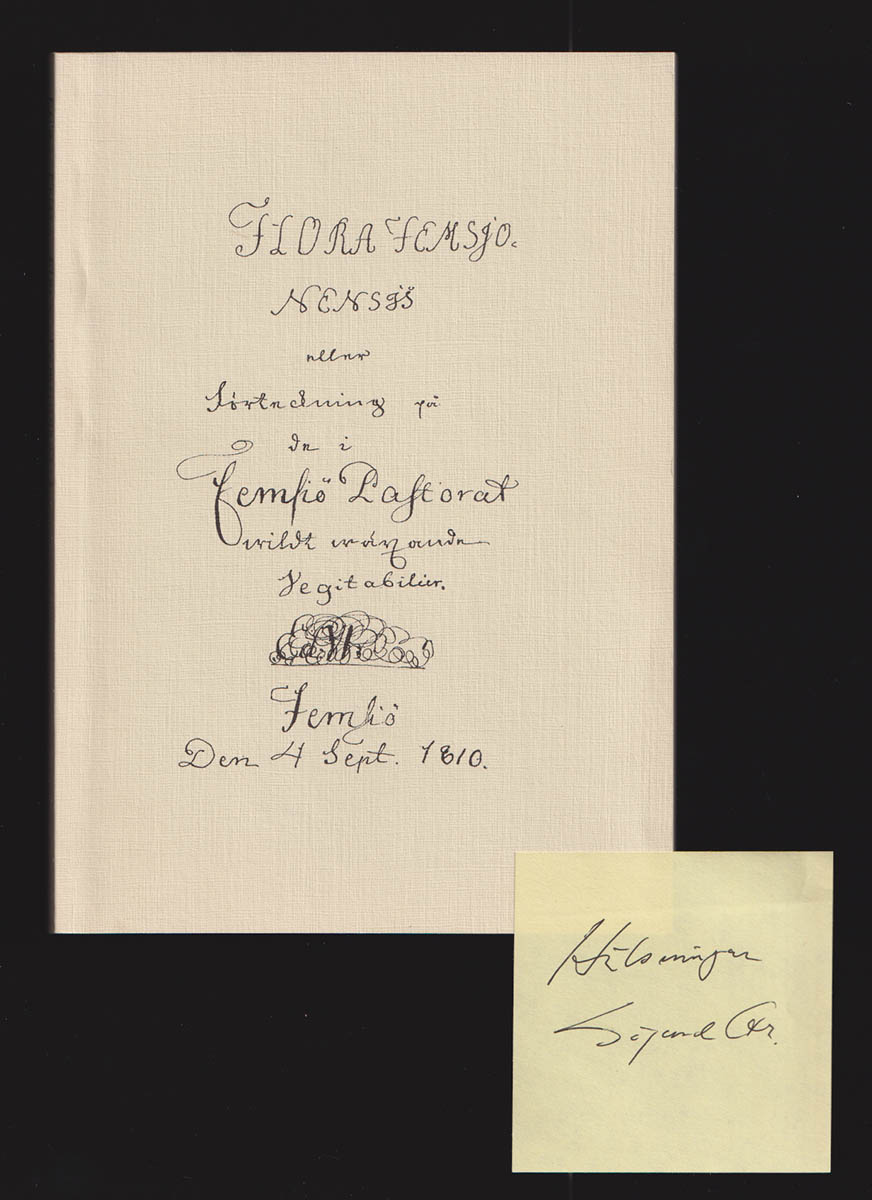 FLORA FEMSJO-
NENSIS
eller
förteckning på
de i
Femsiö Pastorat
wildt wäxande
Vegitabilier.
Femsiö
Den 4 Sept. 1810.
Hälsningar